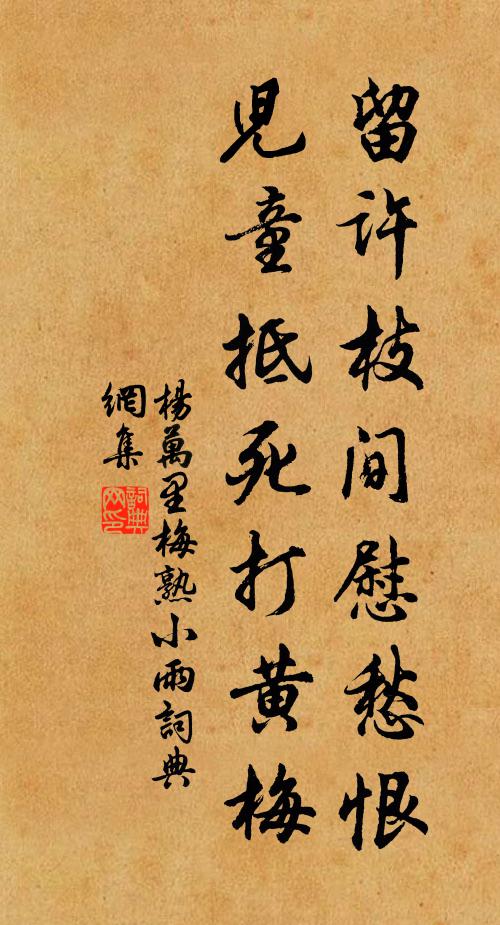 留許枝間慰愁恨
児童抵死打黄梅
楊萬里梅熟小雨詞典
網集
詞典
网印